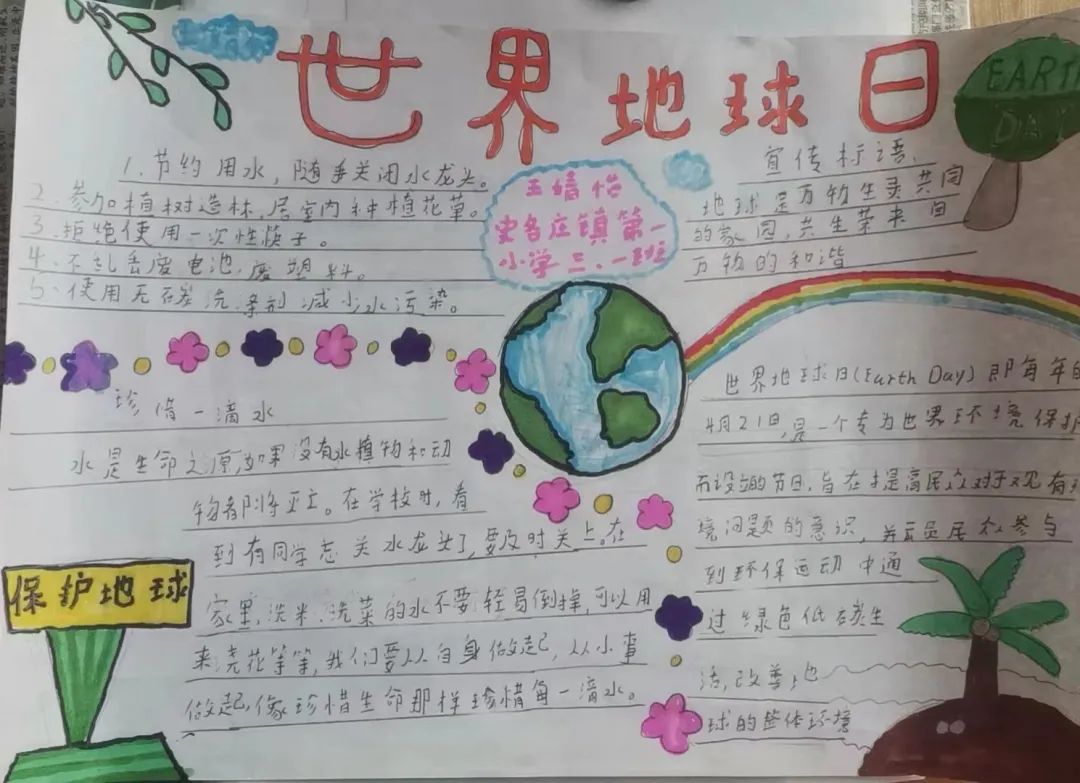 世界地球日
EARTH
DAY
1.节约用水,随手关闭水龙头。
2.参加植树造林,居室内种植花草。
3.拒绝使用一次性筷子。
4、不乱丢废电池,废塑料。
5、使用无石炭洗涤剂减少水污染。
王婧怡
史各庄镇第一
小学三、一班
宣传标语、
地球是万物生灵共同
的家园,共生荣来自
万物的和谐
珍惜一滴水
水是生命之原,如果没有水植物和动
物都将灭亡。在学校时,看
到有同学忘关水龙头了,要及时关上。在
家里,洗米、洗菜的水不要轻易倒掉,可以用
来浇花等等,我们要从自身做起,从小事
做起,像珍惜生命那样珍惜每一滴水。
保护地球
世界地球日(Earth Day)即每年的
4月21日,是一个专为世界环境保护
而设立的节日,旨在提高民众对于现有
境问题的意识,并动员民众参与
到环保运动中通
过绿色低碳生
活,改善地
球的整体环境